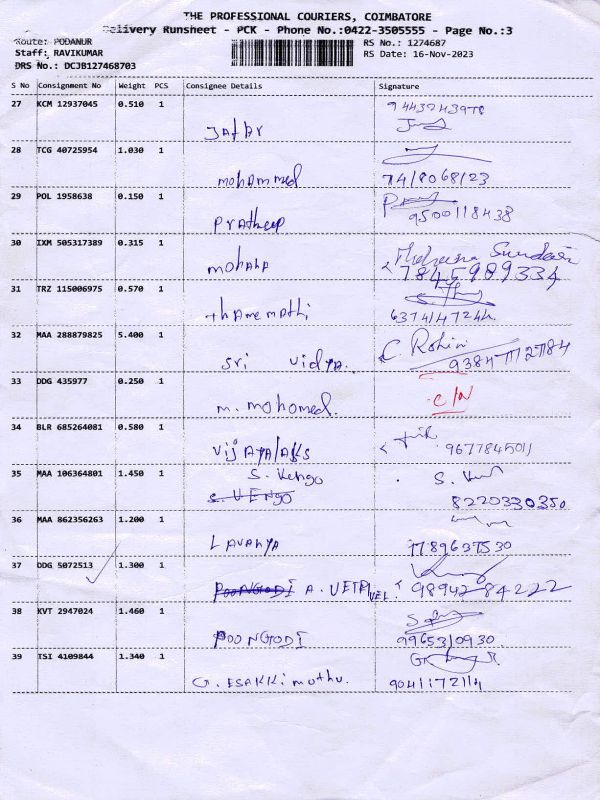 THE PROFESSIONAL COURIERS, COIMBATORE
Delivery Runsheet - PCK - Phone No.:0422-3505555 - Page No.:3
Route: PODANUR
Staff: RAVIKUMAR
DRS No.: DCJB127468703
RS No.: 1274687
RS Date: 16-Nov-2023
S No Consignment No Weight PCS Consignee Details Signature
27 KCM 12937045 0.510 1
Jafar
28 TCG 40725954 1.030 1
mohammed 74/8068/23
29 POL 1958638 0.150 1
Pratheep 9500118438
30 IXM 505317389 0.315 1
mohana 7845989334
31 TRZ 115006975 0.570 1
6374147244
32 MAA 288879825 5.400 1 C. Rohini
Sri Vidya.
33 DDG 435977 0.250 1
m. mohomed. C/N
34 BLR 685264081 0.580 1
9677845011
35 MAA 106364801 1.450 1 S. Vengo
S. VENGO 8220330350
36 MAA 862356263 1.200 1
LAVANYA 7789637530
37 DDG 5072513 1.300 1
POONGODI A. VETRIVEL 9894284222
38 KVT 2947024 1.460 1
POONGODI 9965310930
39 ISI 4109844 1.340 1
G. ESAKKimuthu. 9041172114